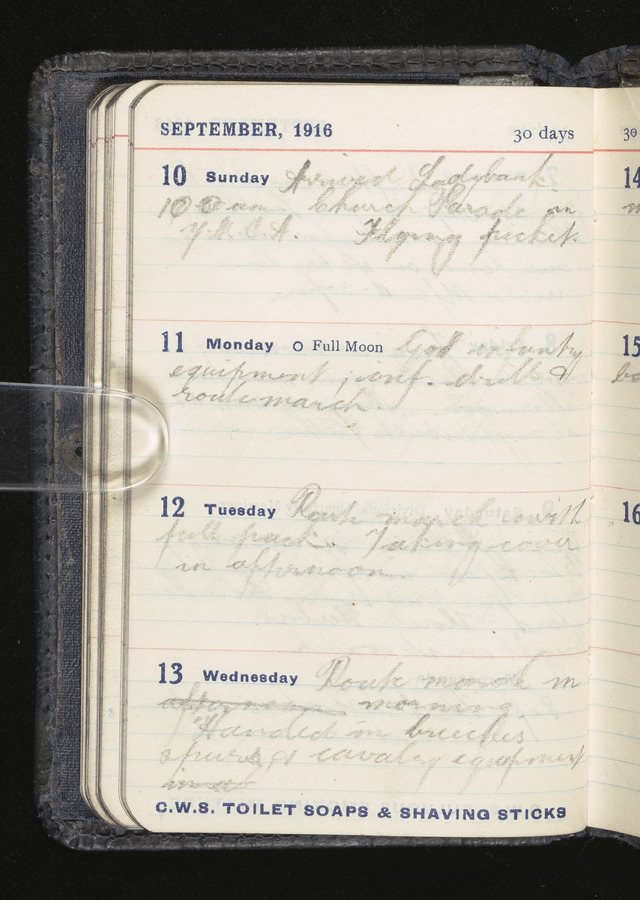 SEPTEMBER, 1916 30 days
10 Sunday Arrived Ladybank
10 am Church Parade in
Y.M.C.A. Flying picket
11 Monday O Full Moon Got infantry
equipment; drill &
route march
12 Tuesday Route march with
full pack. Taking cover
in afternoon.
13 Wednesday Route march in
afternoon morning
Handed in breeches
spurs & cavalry equipment
in a
C.W.S. TOILET SOAPS & SHAVING STICKS
30
14
15
16